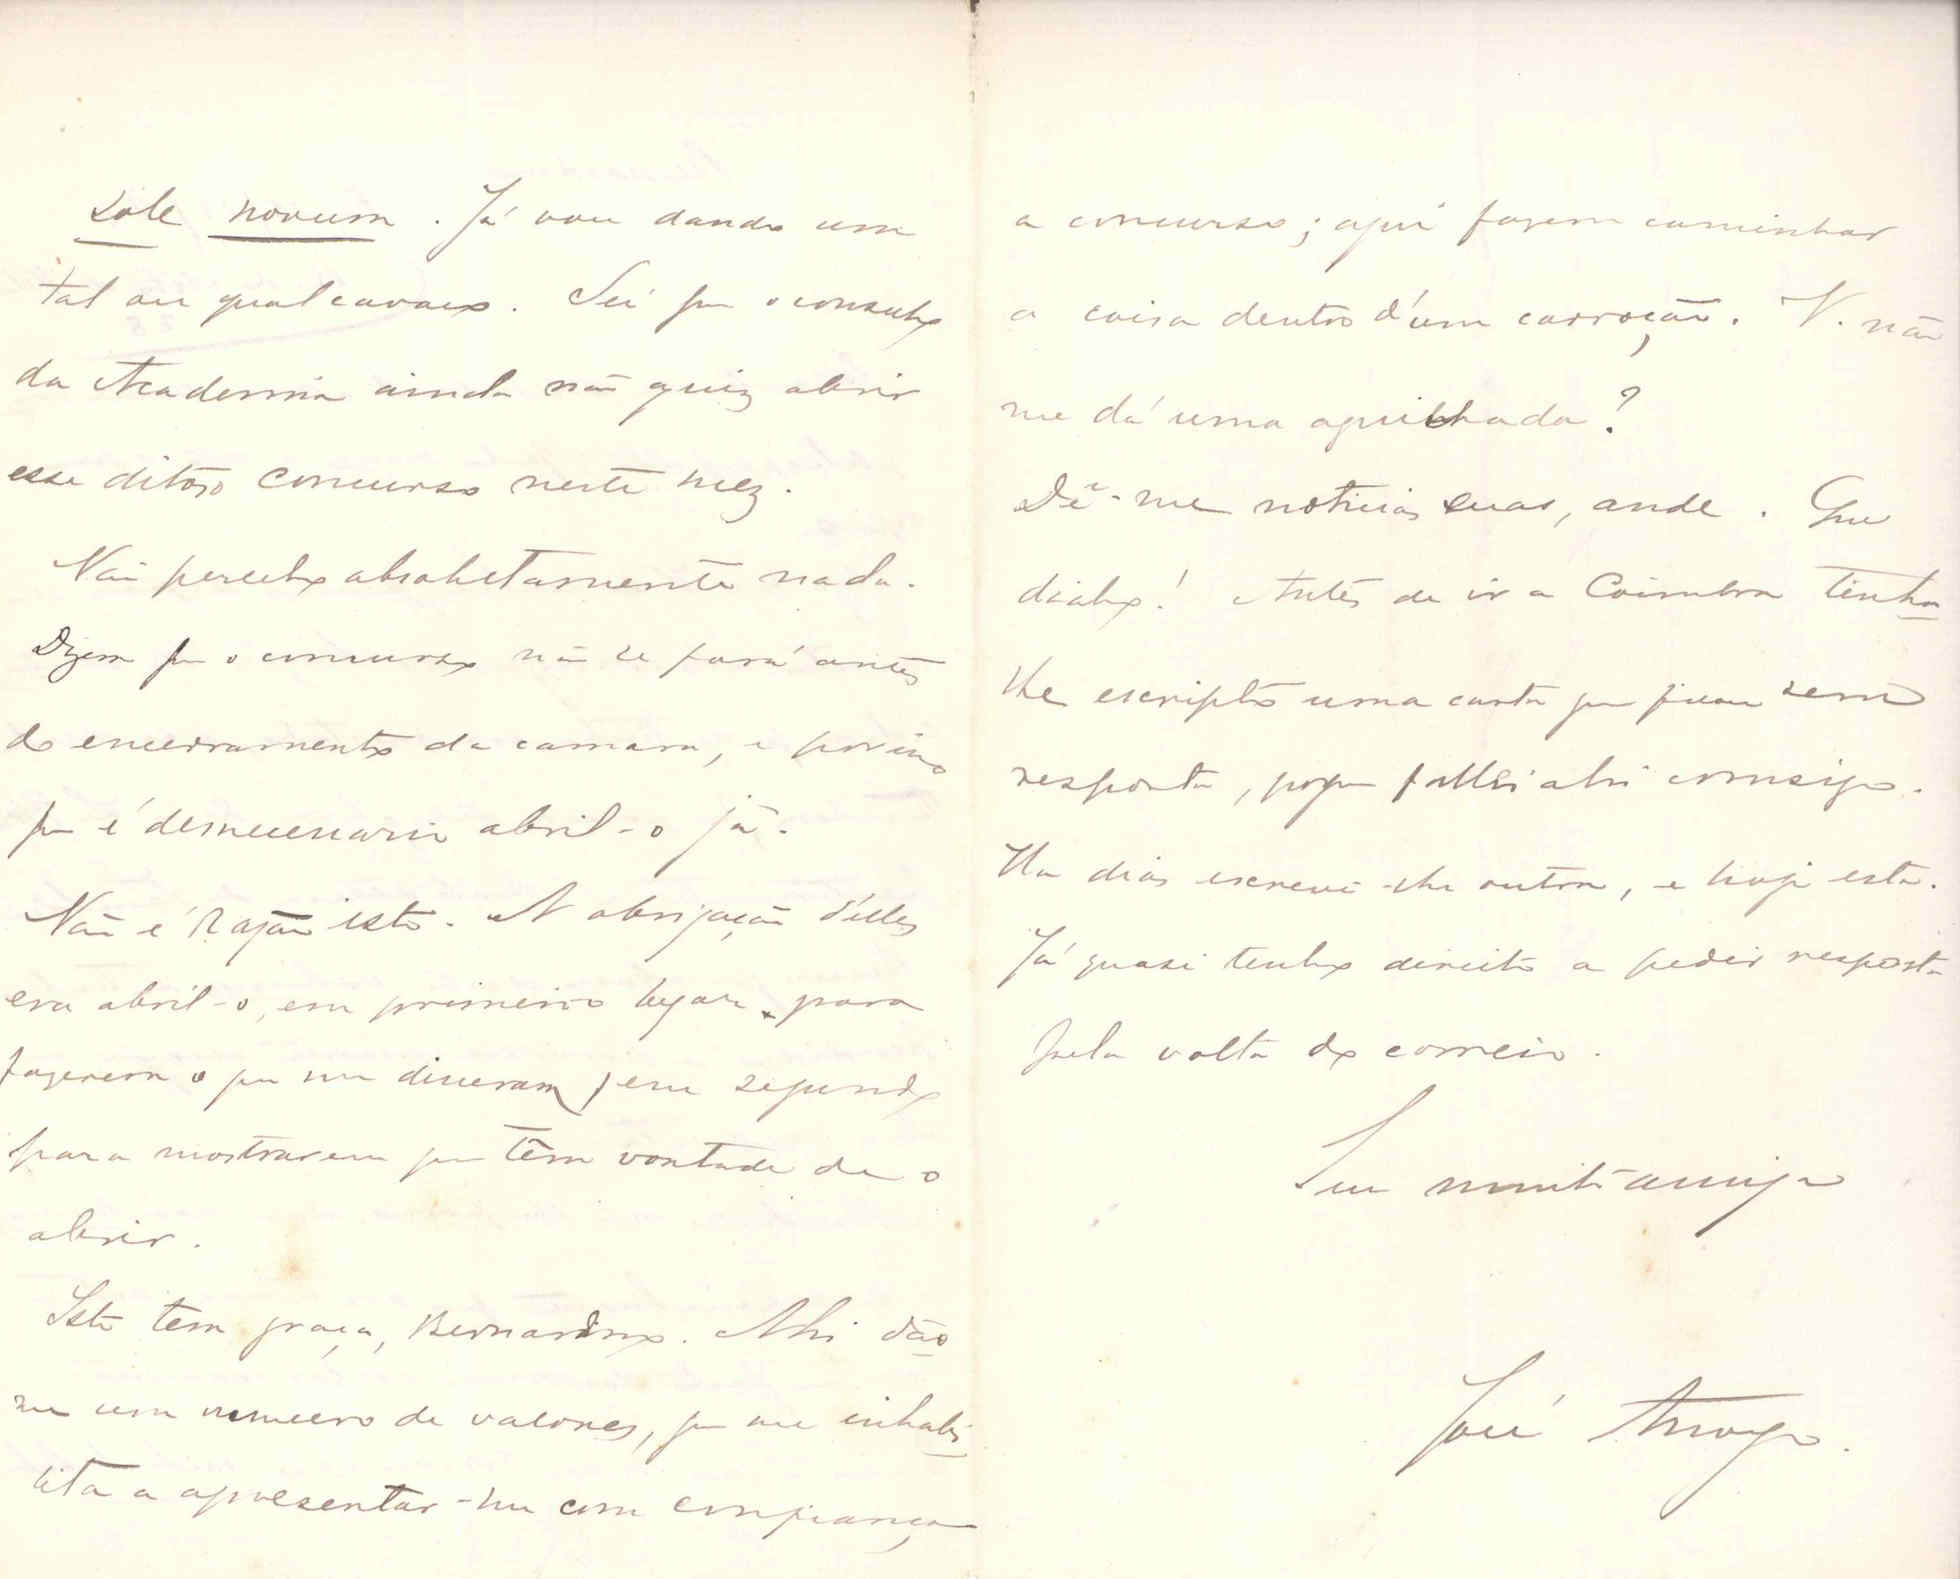 sole novum. Já vou dando um
tal ou qual cavaco. Sei que o conselho
da Academia ainda não quiz abrir
esse ditoso concurso neste mez.
Não percebo absolutamente nada.
Dizem que o concurso não se fará antes
do encerramento da camara, e por isso
que é desnecessario abril-o já.
Não é razão isto. A obrigação d'elles
era abril-o, em primeiro logar para
fazerem o que me disseram, em segundo
para mostrarem que têm vontade de o
abrir.
Isto tem graça, Bernardino. Ahi dão-
me um numero de valores, que me inhabi-
lita a apresentar-me com confiança
a concurso; aqui fazem caminhar
a coisa dentro d'um carroção. V. não
me dá uma aguilhada?
Dê-me noticias suas, ande. Que
diabo! Antes de ir a Coimbra tinha-
lhe escripto uma carta que ficou sem
resposta, porque fallei ahi comsigo.
Ha dias escrevi-lhe outra, e hoje esta.
Já quasi tenho direito a pedir resposta
pela volta do correio.
Seu muito amigo
José Arroyo.